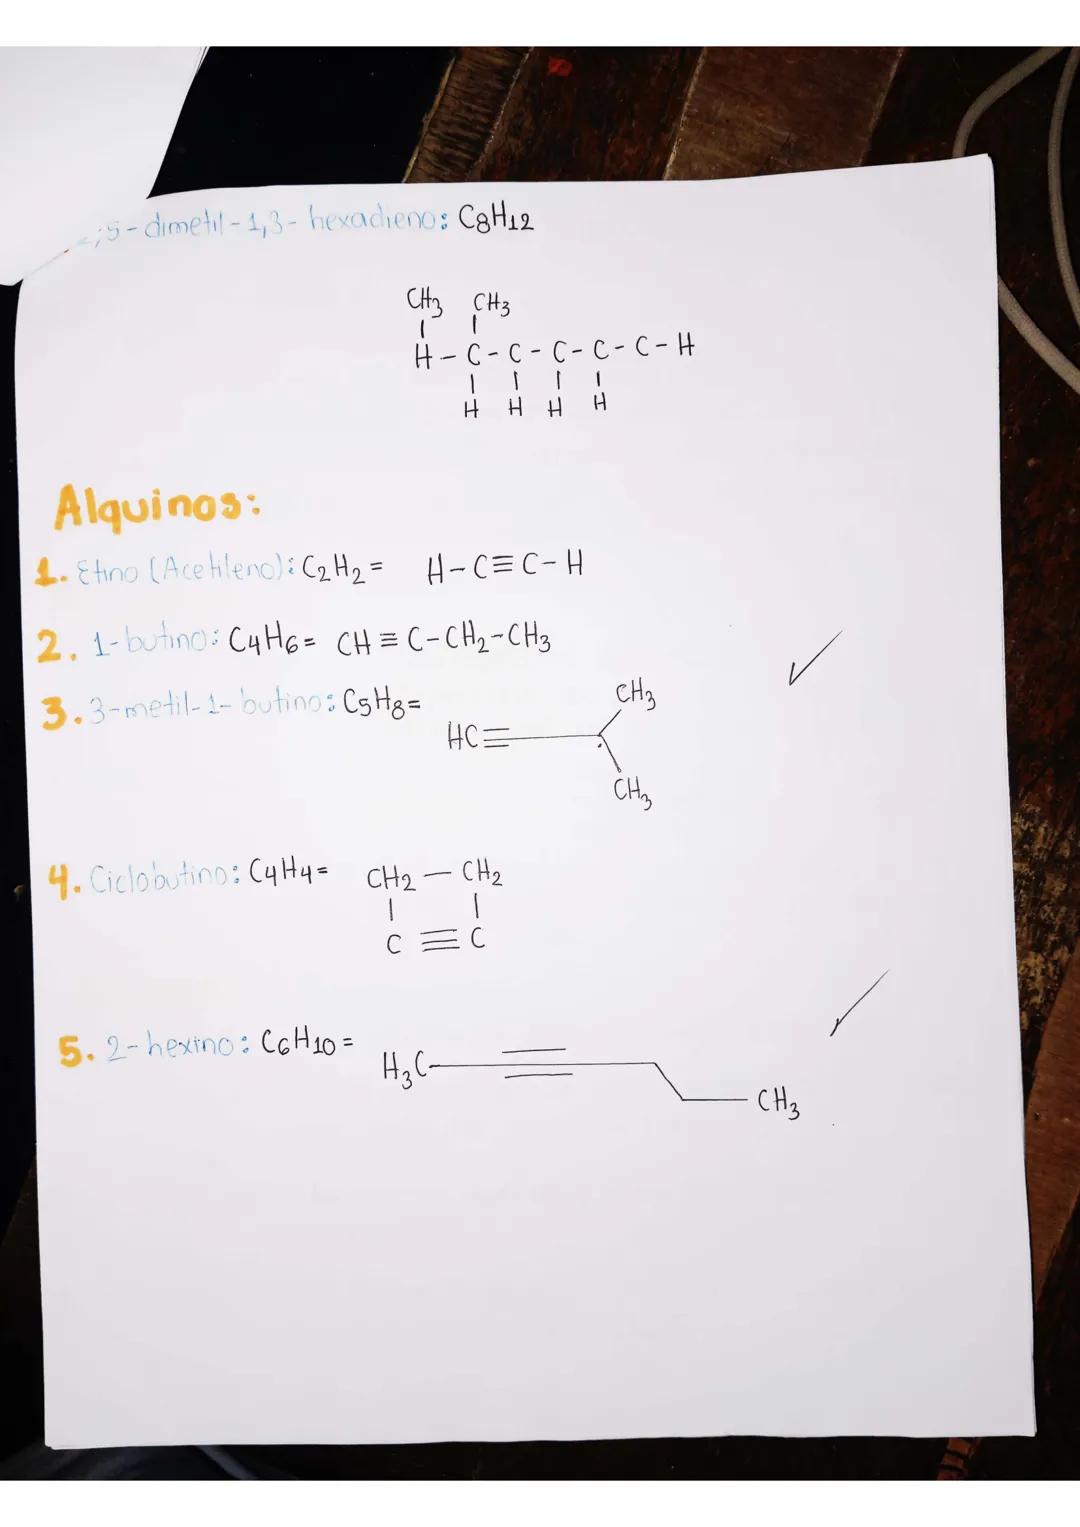 2,5-dimetil-1,3-hexadieno: C8H12
CH3 CH3
H-C-C-C-C-C-H
H H H H
Alquinos:
1. Etino (Acetileno): C2H2= H-C≡C-H
2. 1-butino: C4H6= CH≡C-CH2-CH3
3. 3-metil-1-butino: C5H8=
CH3
HC≡
CH3
4. Ciclobutino: C4H4= CH2—CH2
C≡C
5. 2-hexino: C6H10=
H3C
CH3